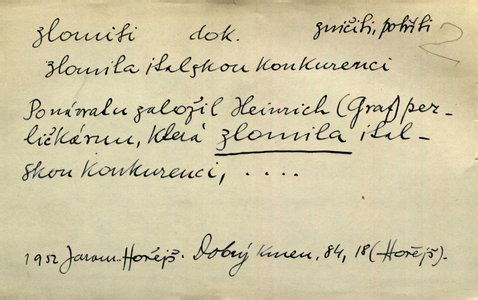 zlomiti dok. zničiti, potříti
zlomila italskou konkurenci
Po návratu založil Heinrich (Graf) per-
ličkárnu, která zlomila ital-
skou konkurenci, ....
1952 Jarom. Hořejš. Dobrý kmen, 84, 18 (Hořejš).